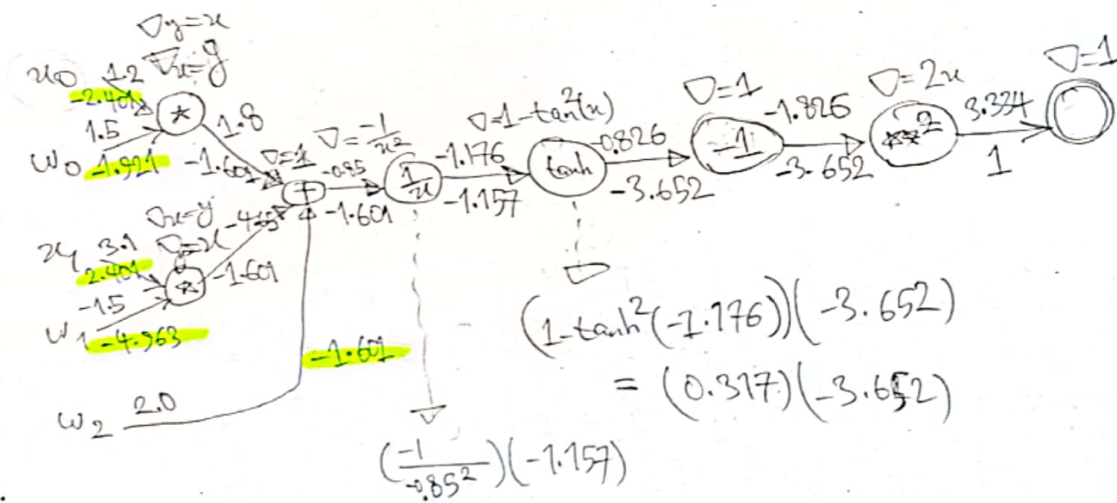 ∇y=x
∇x=y
x0 1.2
-2.401
*
1.5
w0 -1.921
1.8
-1.601
∇=1
+
∇=-1/x²
-0.85
-1.601
1/x
-1.176
-1.157
∇=1-tan²(x)
tanh
-0.826
-3.652
∇=1
-1
-1.826
-3.652
∇=2x
**2
3.334
1
∇=1
∇x=y
∇y=x
x1 3.1
2.401
*
-1.5
w1 -4.963
-4.65
-1.601
-1.601
w2 2.0
(1-tanh²(-1.176))(-3.652)
= (0.317)(-3.652)
(-1/-0.85²)(-1.157)